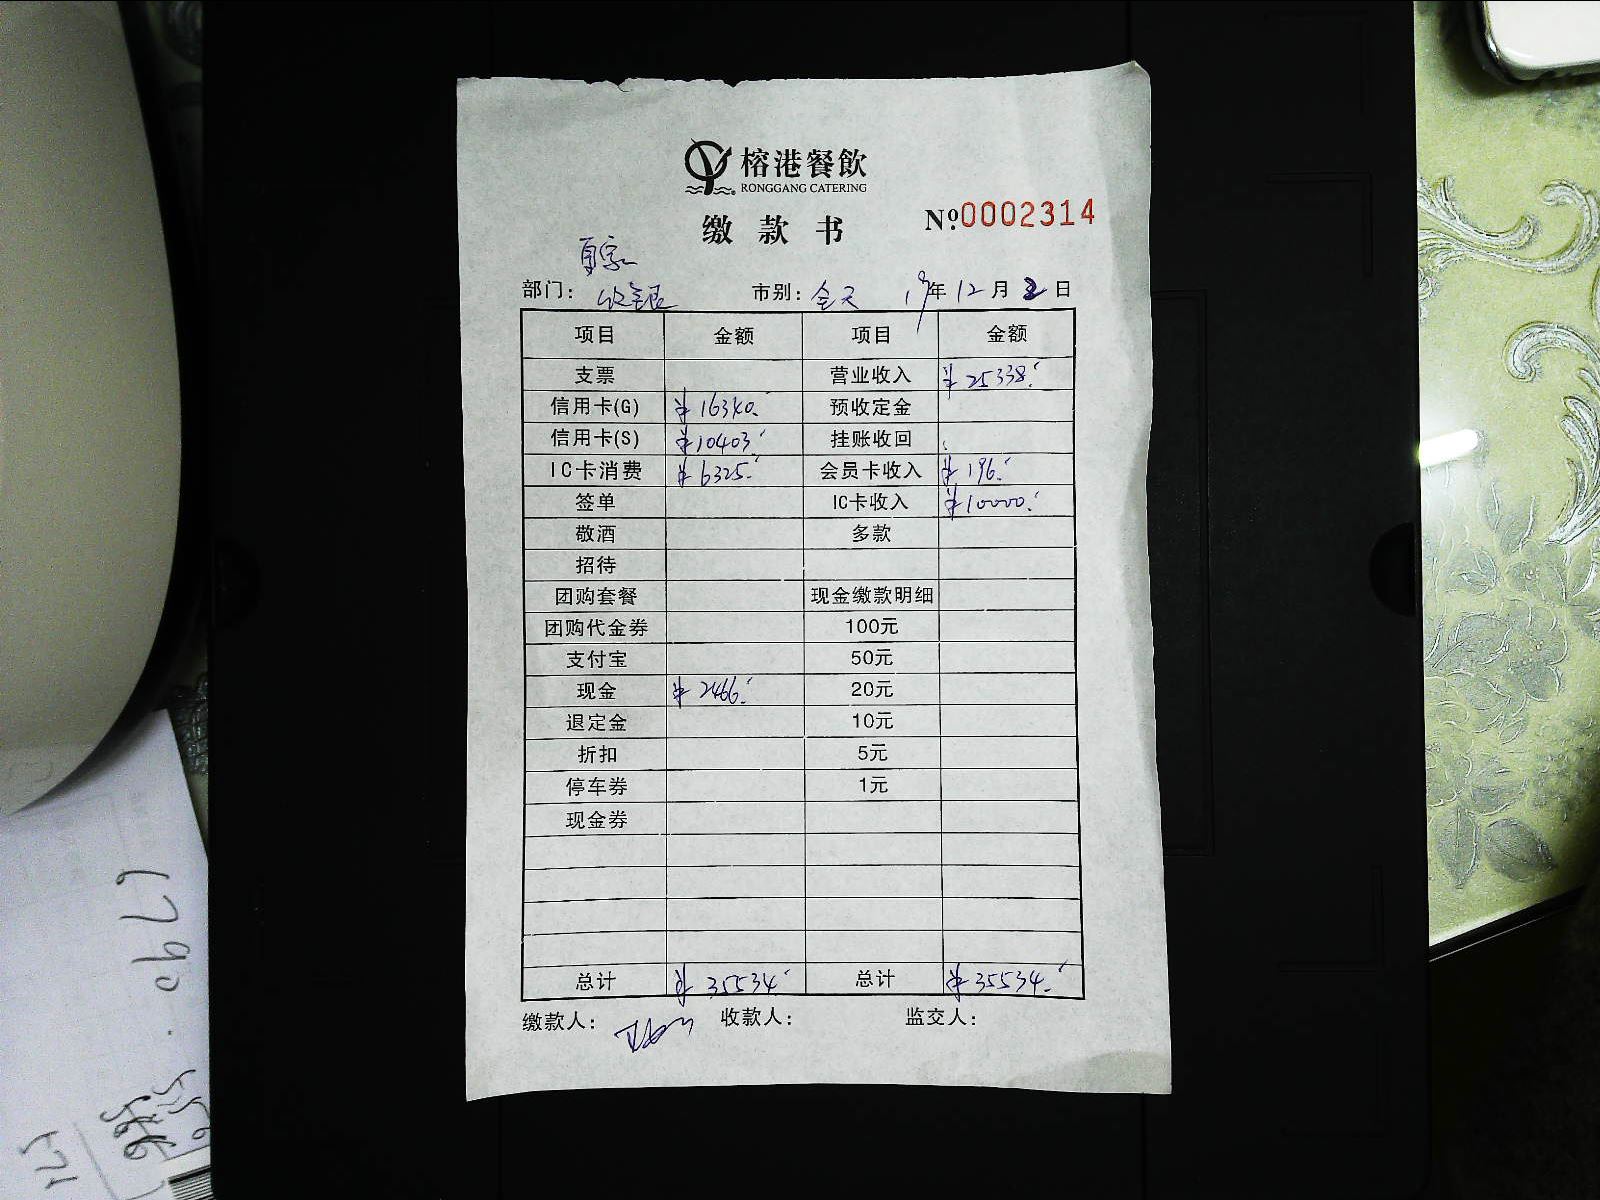 榕港餐飲
RONGGANG CATERING
缴款书 №.0002314
部门: 收银 市别: 全天 19年12月2日
项目 金额 项目 金额
支票 营业收入 ¥25338.-
信用卡(G) ¥16340.- 预收定金
信用卡(S) ¥10403.- 挂账收回
IC卡消费 ¥6325.- 会员卡收入 ¥196.-
签单 IC卡收入 ¥10000.-
敬酒 多款
招待
团购套餐 现金缴款明细
团购代金券 100元
支付宝 50元
现金 ¥2466.- 20元
退定金 10元
折扣 5元
停车券 1元
现金券
总计 ¥35534.- 总计 ¥35534.-
缴款人: 收款人: 监交人:
6790.